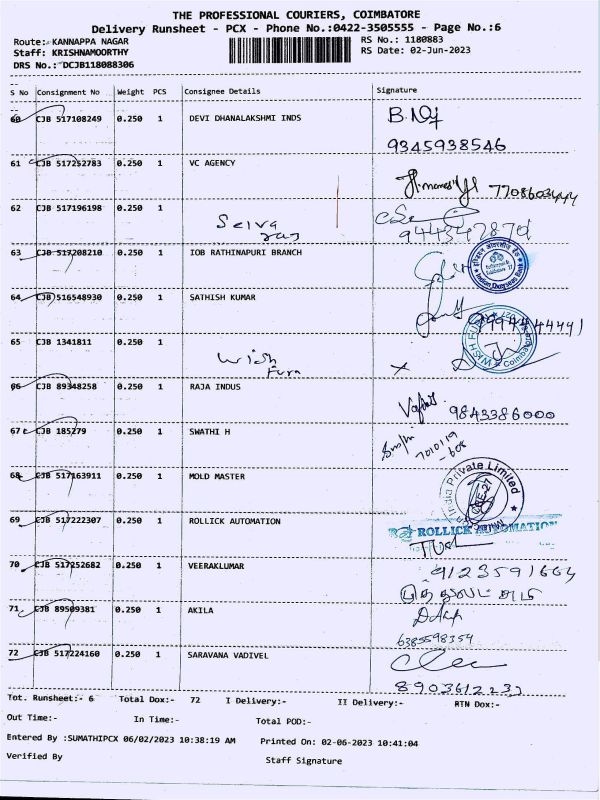 THE PROFESSIONAL COURIERS, COIMBATORE
Delivery Runsheet - PCX - Phone No.:0422-3505555 - Page No.:6
Route:- KANNAPPA NAGAR
RS No.: 1180883
Staff: KRISHNAMOORTHY
RS Date: 02-Jun-2023
DRS No.: DCJB118088306
S No Consignment No Weight PCS Consignee Details Signature
60 CJB 517108249 0.250 1 DEVI DHANALAKSHMI INDS
9345938546
61 CJB 517252783 0.250 1 VC AGENCY
7708603444
62 CJB 517196198 0.250 1
Selva
63 CJB 517208210 0.250 1 IOB RATHINAPURI BRANCH
Indian Overseas Bank
64 CJB 516548930 0.250 1 SATHISH KUMAR
65 CJB 1341811 0.250 1
66 CJB 89348258 0.250 1 RAJA INDUS
9843386000
67 CJB 185279 0.250 1 SWATHI H
68 CJB 517163911 0.250 1 MOLD MASTER
India Private Limited
69 CJB 517222307 0.250 1 ROLLICK AUTOMATION
ROLLICK AUTOMATION
70 CJB 517252682 0.250 1 VEERAKLUMAR
9123591664
71 CJB 89509381 0.250 1 AKILA
6385598354
72 CJB 517224160 0.250 1 SARAVANA VADIVEL
Tot. Runsheet:- 6 Total Dox:- 72 I Delivery:- II Delivery:- RTN Dox:-
Out Time:- In Time:- Total POD:-
Entered By :SUMATHIPCX 06/02/2023 10:38:19 AM Printed On: 02-06-2023 10:41:04
Verified By Staff Signature